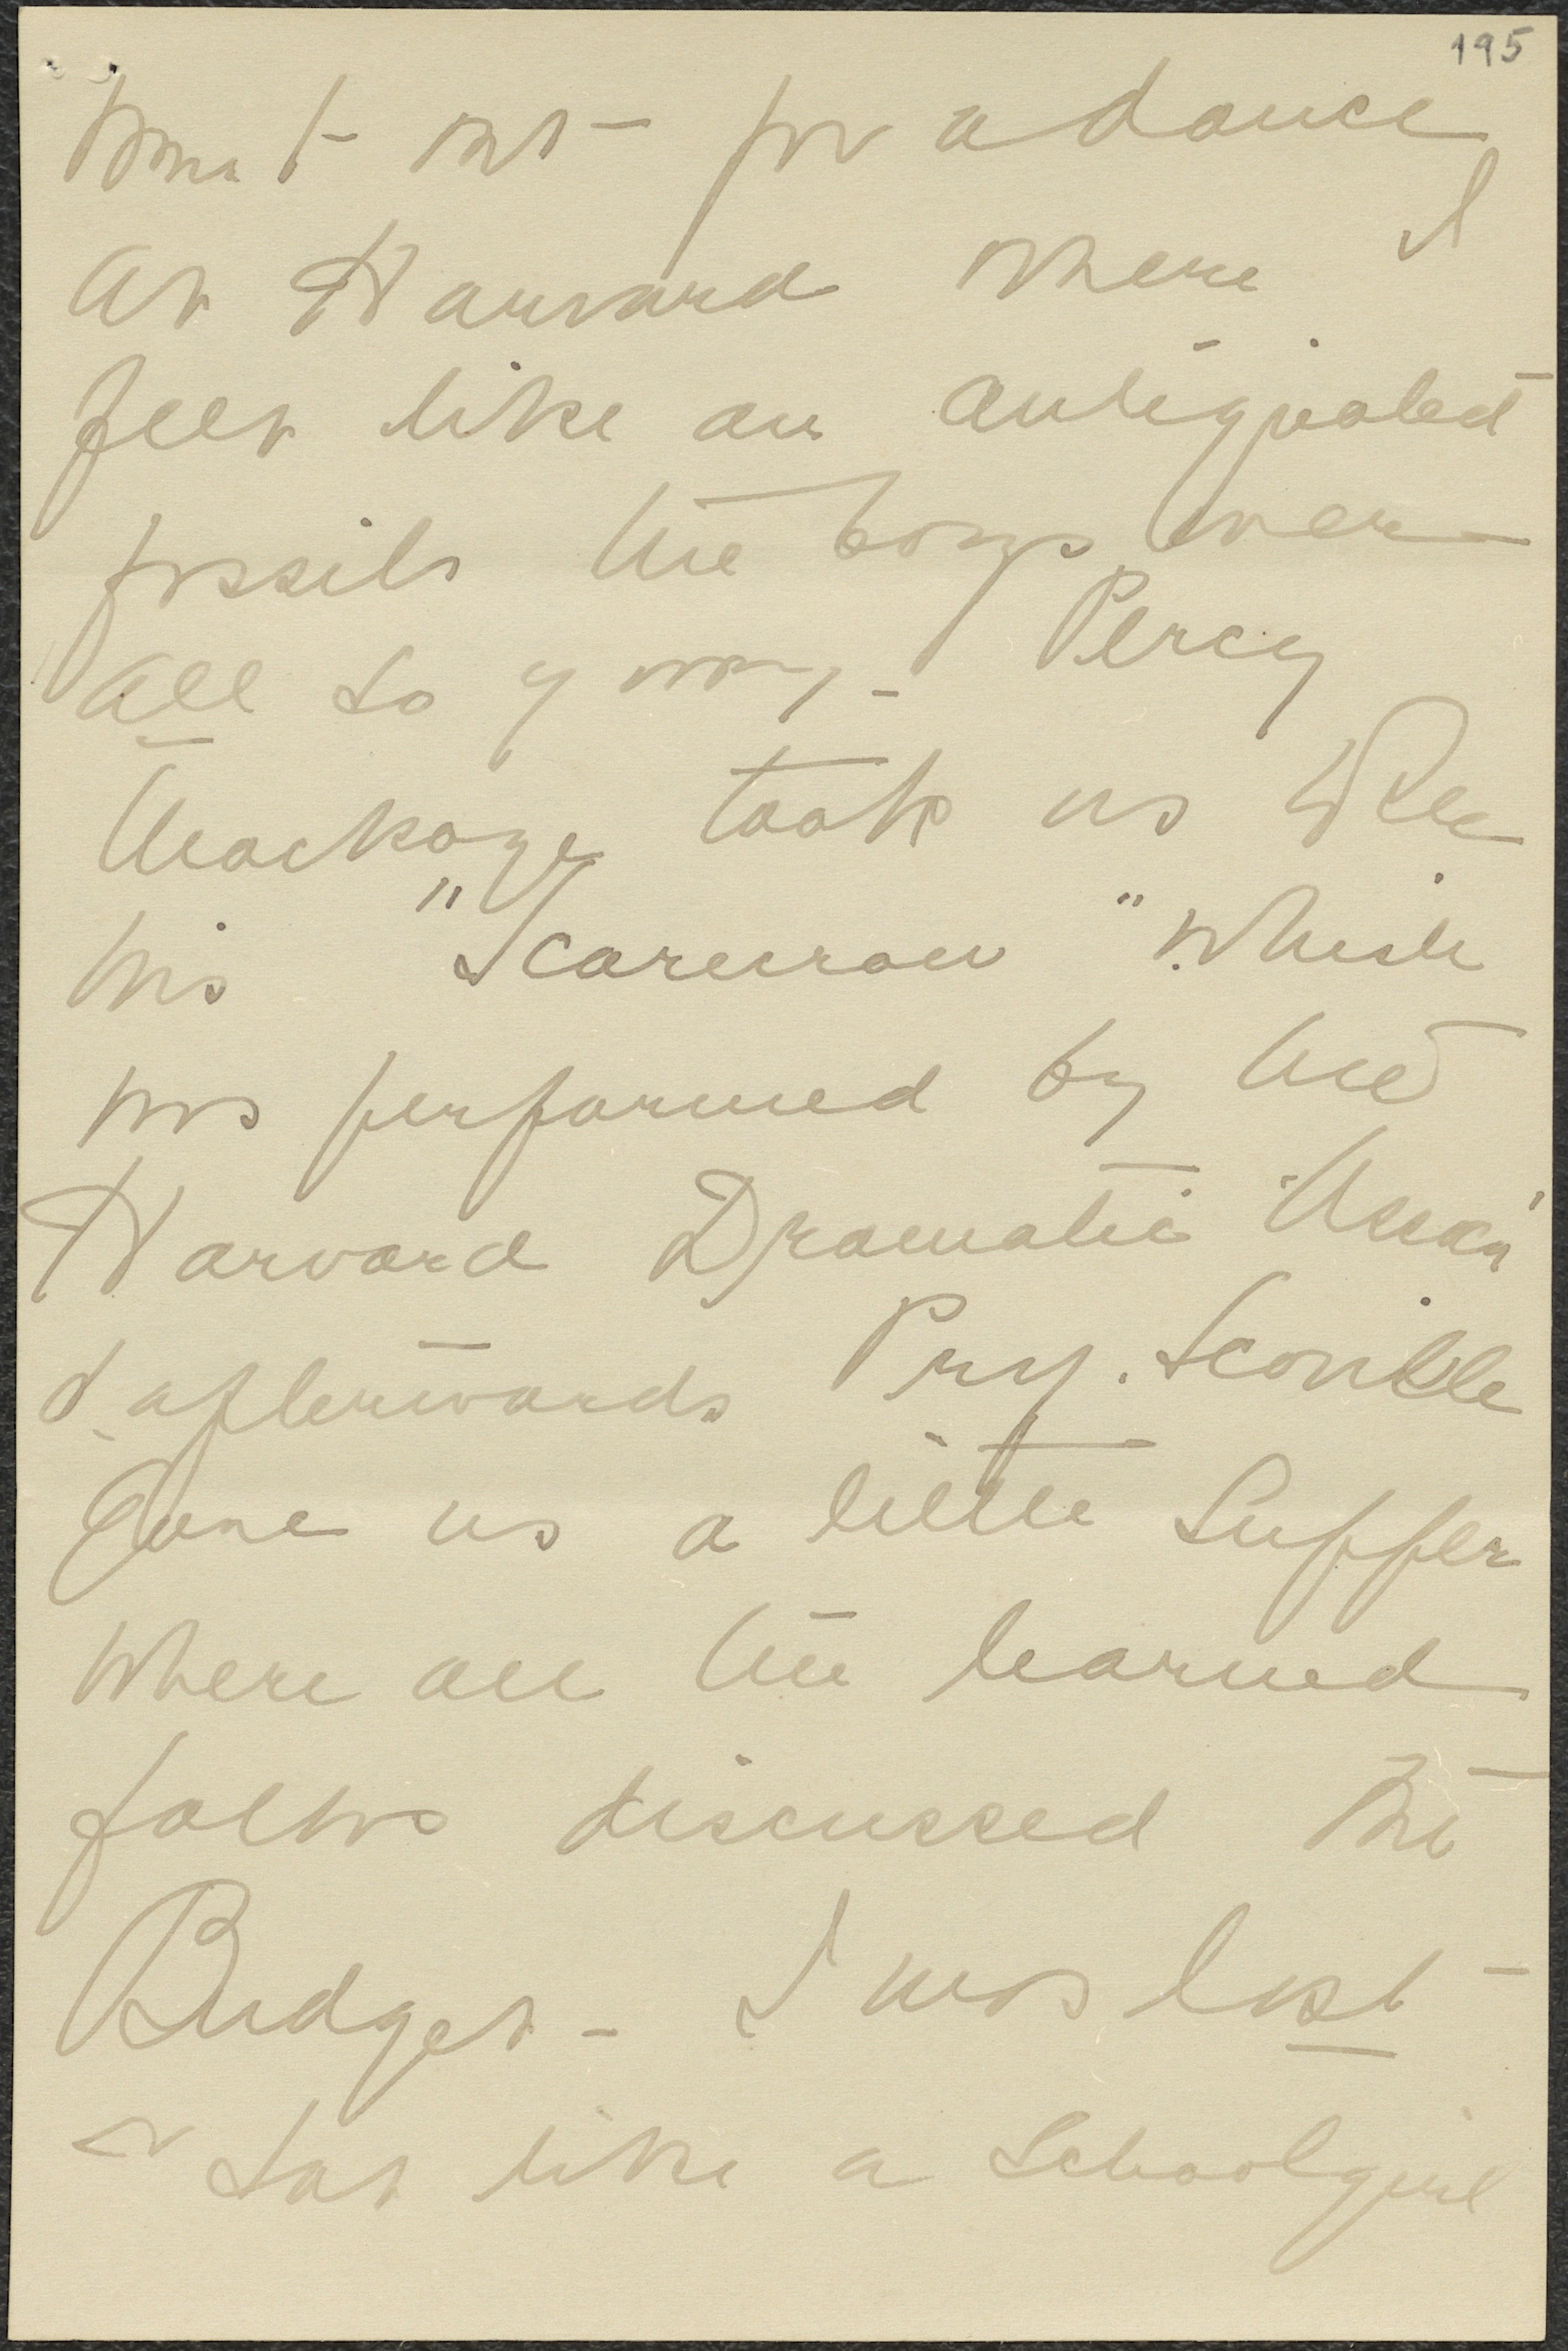 195
out for a dance
at Harvard where I
felt like an antiquated
fossil the boys were
all so young - Percy
Mackaye took us to see
his "Scarecrow" which
was performed by the
Harvard Dramatic
& afterwards Prof.
Gave us a little supper
where all the learned
folks discussed the
Budget - I was lost -
& sat like a schoolgirl